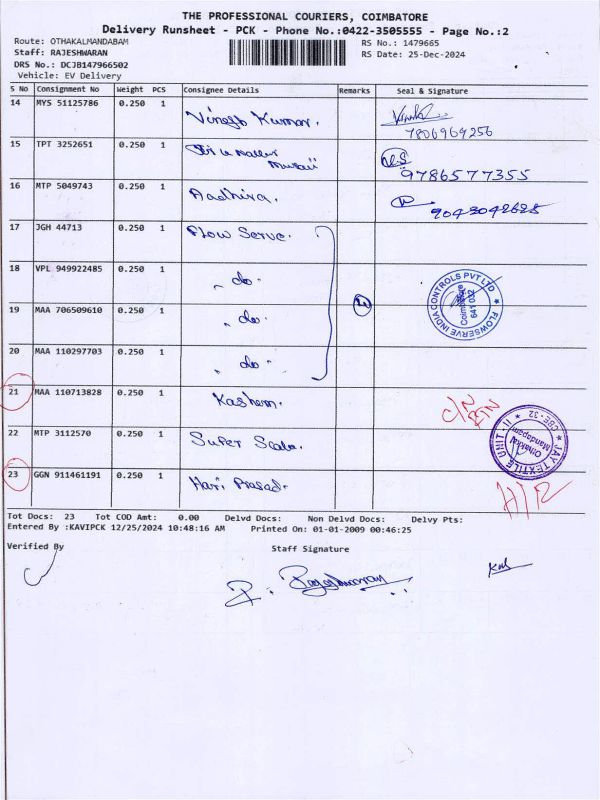 THE PROFESSIONAL COURIERS, COIMBATORE
Delivery Runsheet - PCK - Phone No.:0422-3505555 - Page No.:2
Route: OTHAKALMANDABAM
RS No.: 1479665
Staff: RAJESHWARAN
RS Date: 25-Dec-2024
DRS No.: DCJB147966502
Vehicle: EV Delivery
S No Consignment No Weight PCS Consignee Details Remarks Seal & Signature
14 MYS 51125786 0.250 1 Vinesh Kumar.
7806969256
15 TPT 3252651 0.250 1
9786577355
16 MTP 5049743 0.250 1 Aadhira.
9043042628
17 JGH 44713 0.250 1 Flow Serve.
18 VPL 949922485 0.250 1 " do "
19 MAA 706509610 0.250 1 " do "
FLOWSERVE INDIA CONTROLS PVT LTD
Coimbatore
641 032
20 MAA 110297703 0.250 1 " do "
21 MAA 110713828 0.250 1 Kashem.
22 MTP 3112570 0.250 1 Super Scale.
JAY TEXTILE UNIT - II
CBE-32
Othakkal
Mandapam
23 GGN 911461191 0.250 1 Hari Prasad.
Tot Docs: 23 Tot COD Amt: 0.00 Delvd Docs: Non Delvd Docs: Delvy Pts:
Entered By :KAVIPCK 12/25/2024 10:48:16 AM Printed On: 01-01-2009 00:46:25
Verified By
Staff Signature